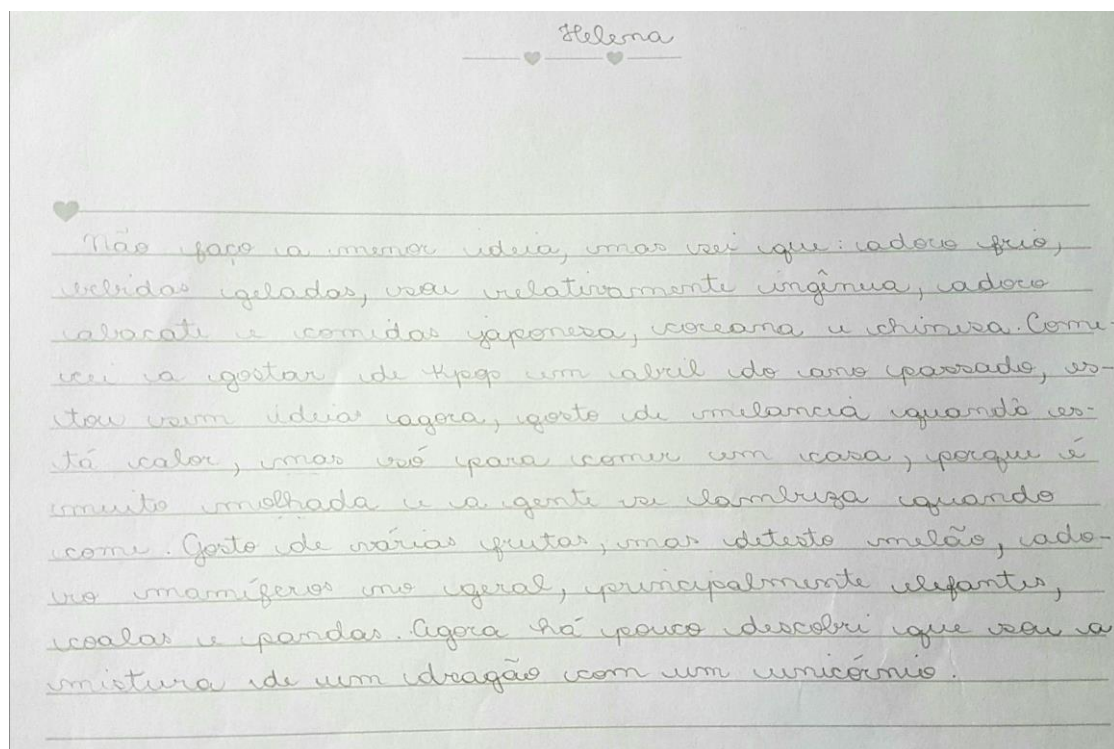 Helena
Não faço a menor ideia, mas sei que: adoro frio,
bebidas geladas, sou relativamente ingênua, adoro
abacate e comidas japonesa, coreana e chinesa. Come
cei a gostar de Kpop em abril do ano passado, es-
tou sem ideias agora, gosto de melancia quando es-
tá calor, mas só para comer em casa, porque é
muito molhada e a gente se lambuza quando
come. Gosto de várias frutas, mas detesto melão, ado-
ro mamíferos no geral, principalmente elefantes,
coalas e pandas. Agora há pouco descobri que sou a
mistura de um dragão com um unicórnio.